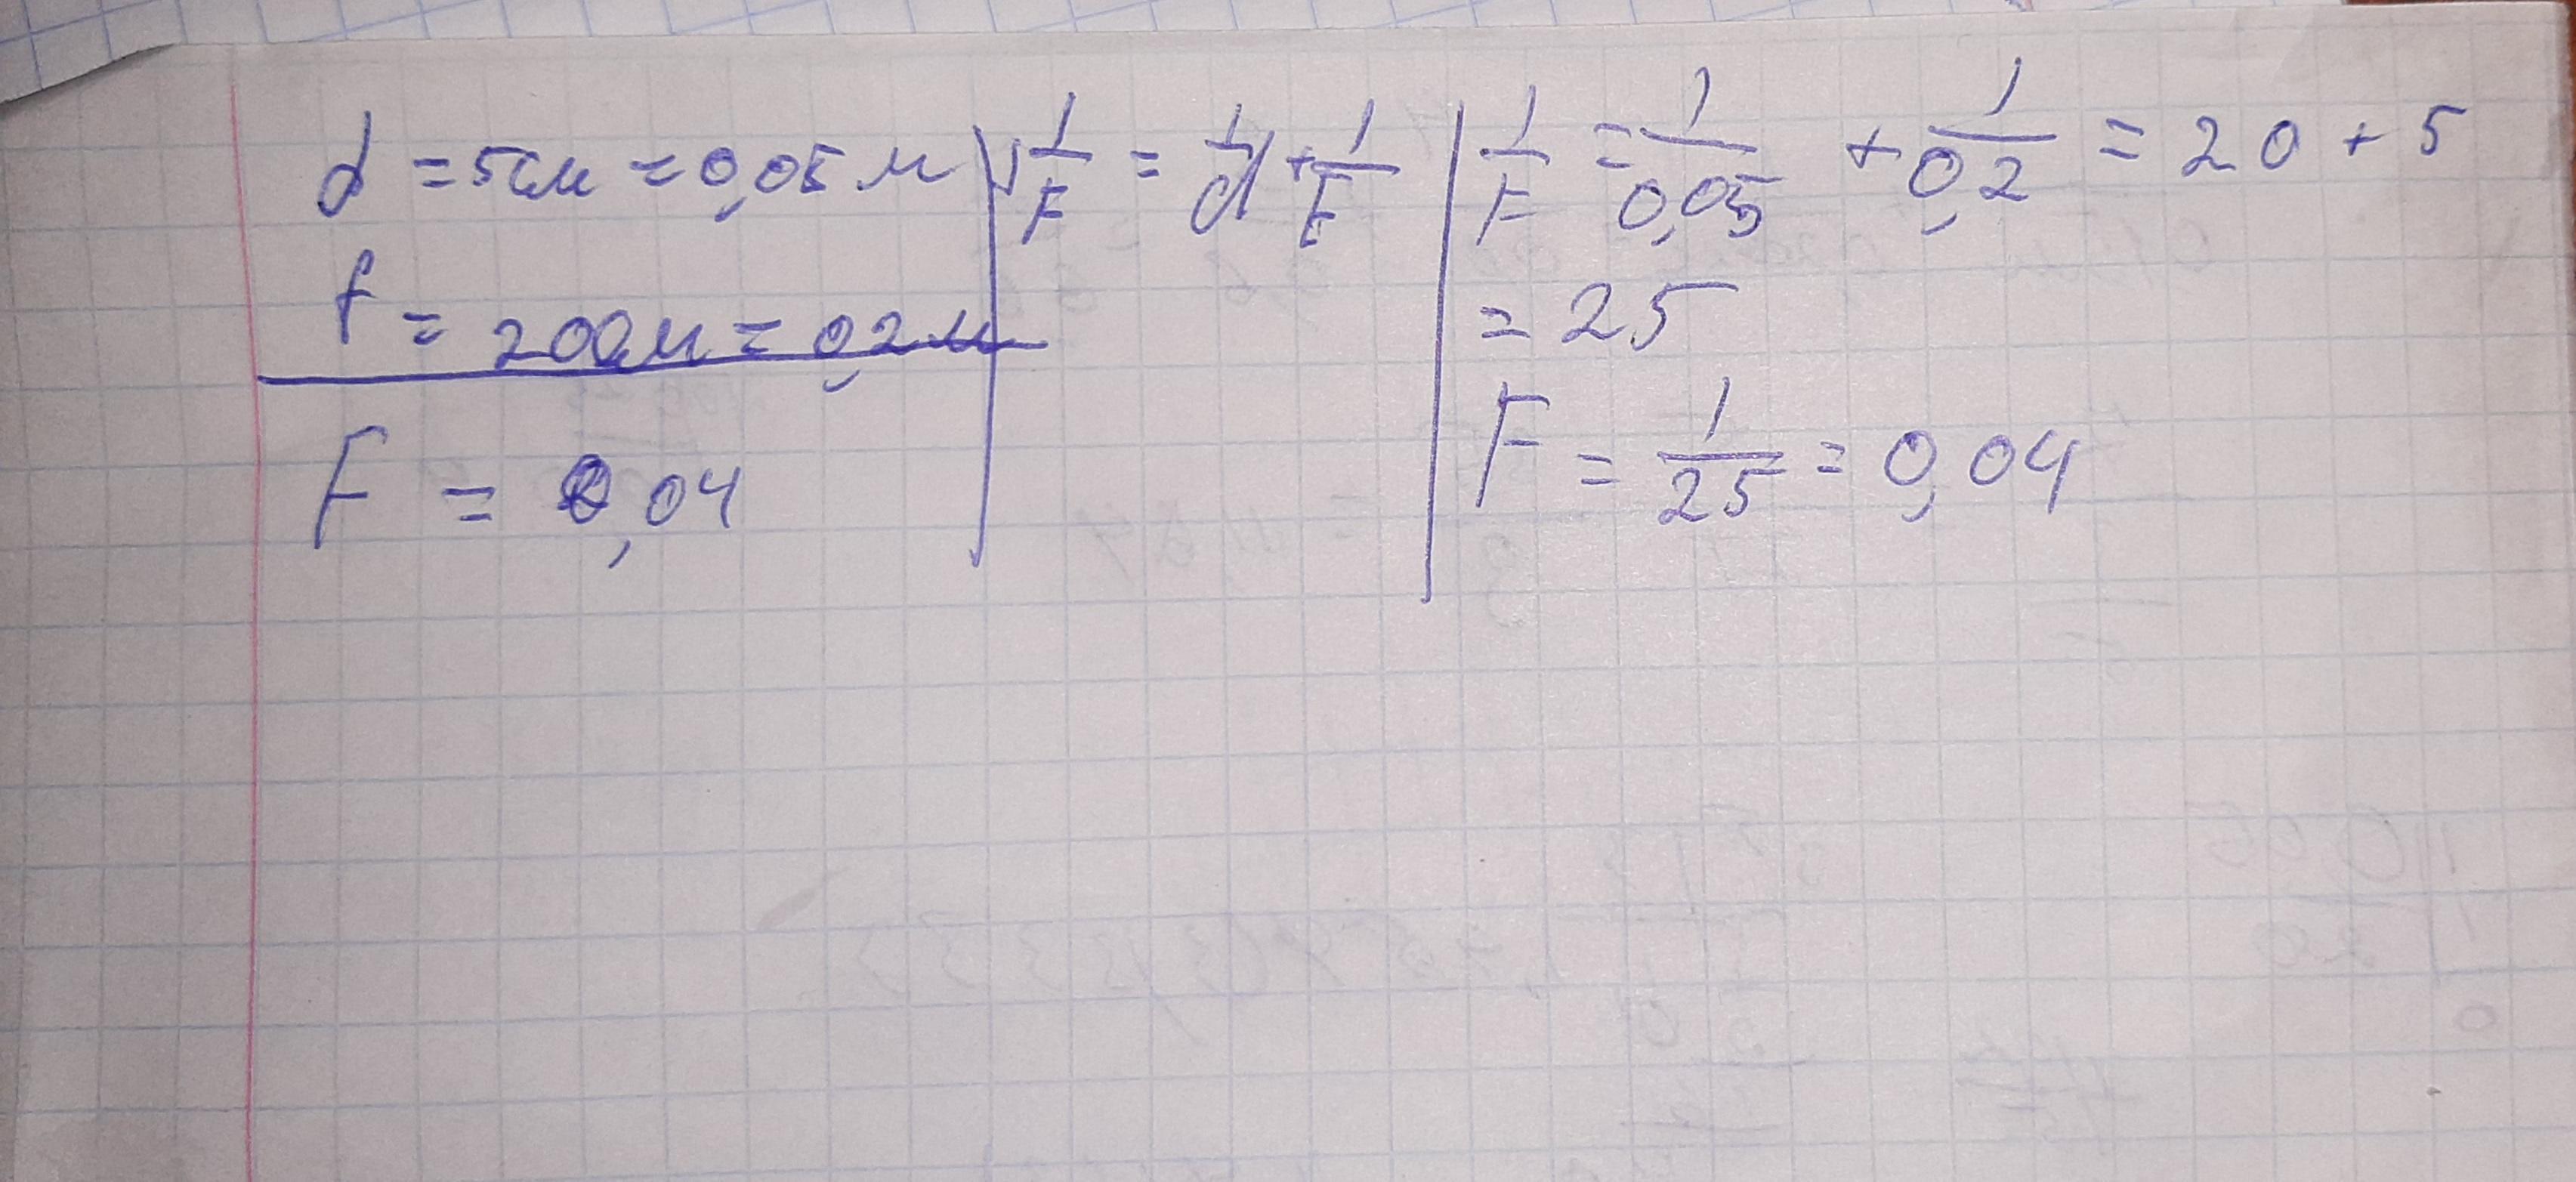 d = 5см = 0,05 м
f = 20см = 0,2м
F = 0,04
1/F = 1/d + 1/f
1/F = 1/0,05 + 1/0,2 = 20 + 5
= 25
F = 1/25 = 0,04